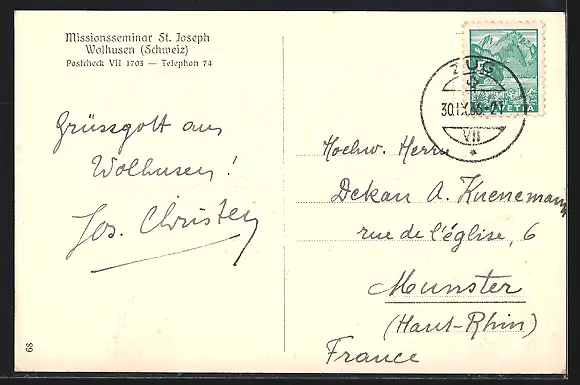 Missionsseminar St. Joseph
Wolhusen (Schweiz)
Postcheck VII 1703 — Telephon 74
ZUG
30.IX.36-21
VII
HELVETIA
Grüssgott aus
Wolhusen!
Jos. Christen
Hochw. Herrn
Dekan A. Kuenemann
rue de l'église, 6
Munster
(Haut-Rhin)
France
68